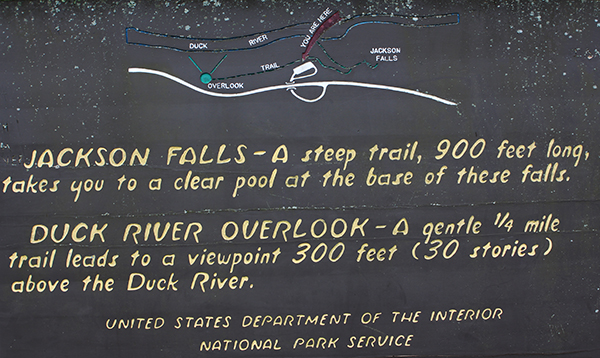 YOU ARE HERE
DUCK RIVER
JACKSON FALLS
TRAIL
OVERLOOK
JACKSON FALLS – A steep trail, 900 feet long,
takes you to a clear pool at the base of these falls.
DUCK RIVER OVERLOOK – A gentle 1/4 mile
trail leads to a viewpoint 300 feet (30 stories)
above the Duck River.
UNITED STATES DEPARTMENT OF THE INTERIOR
NATIONAL PARK SERVICE